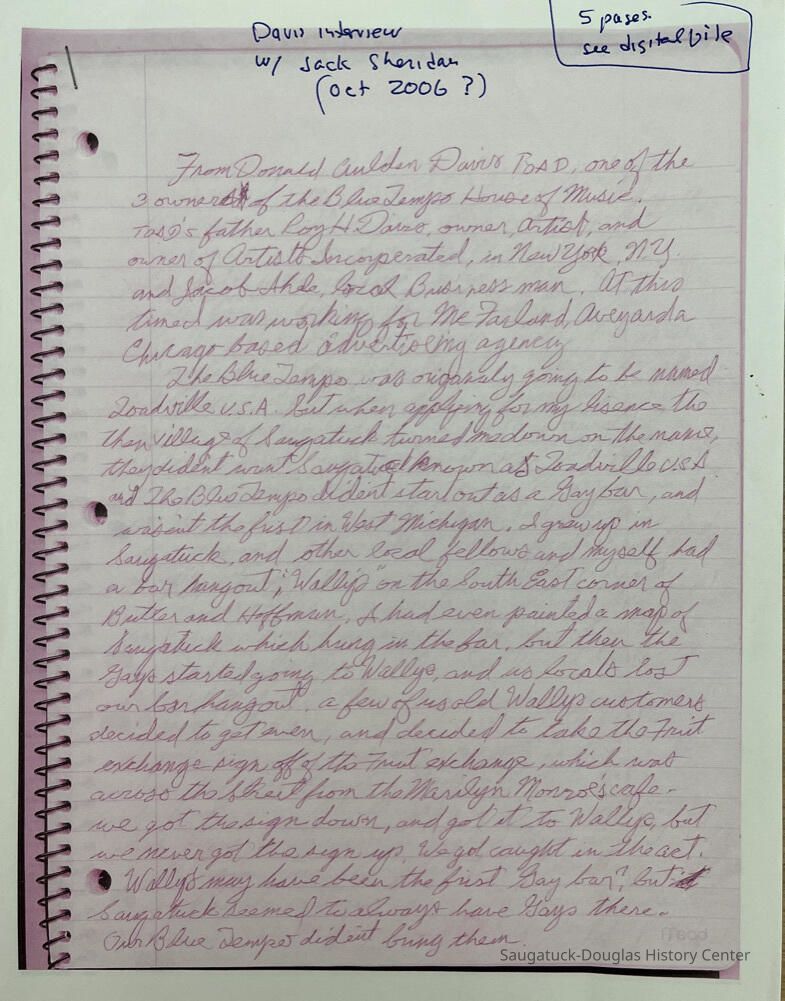 Davis interview
w/ Jack Sheridan
(Oct 2006 ?)
5 pages.
see digital file
1
From Donald Gulden Davis TOAD, one of the
3 owners of the Blue Tempo House of Music.
TOAD's father Roy H Davis, owner, Artist, and
owner of Artists Incorperated, in New York, N.Y.
and Jacob Ahde, local Business man. At this
time I was working for Mc Farland, Aveyard a
Chicago based advertiseing agency
The Blue Tempo was origanaly going to be named
Toadville U.S.A. but when applying for my lisence the
then village of Saugatuck turned me down on the name,
they dident want Saugatuck known as Toadville U.S.A
and The Blue Tempo dident start out as a Gay bar, and
wasent the first in West Michigan. I grew up in
Saugatuck, and other local fellows and myself had
a bar hangout, "Wallys" on the South East corner of
Butler and Hoffman. I had even painted a map of
Saugatuck which hung in the bar, but then the
Gays started going to Wallys, and us locals lost
our bar hangout. a few of us old Wallys customers
decided to get even, and decided to take the Fruit
exchange sign off of the Fruit exchange, which was
across the street from the Marilyn Monroe's cafe.
we got the sign down, and got it to Wallys, but
we never got the sign up. We got caught in the act.
Wallys may have been the first Gay bar?, but
Saugatuck seemed to always have Gays there.
Our Blue Tempo dident bring them.
Mead
Saugatuck-Douglas History Center